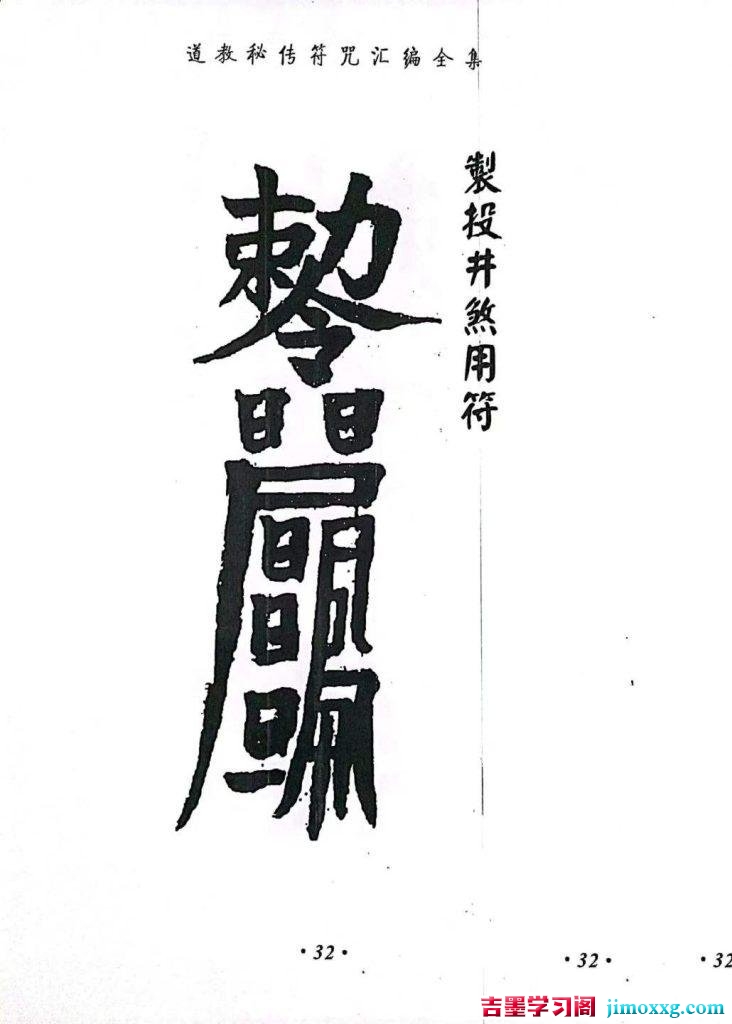 道教秘传符咒汇编全集
製投井煞用符
敕令
·32·
·32·
·32
吉墨学习阁 jimoxxg.com